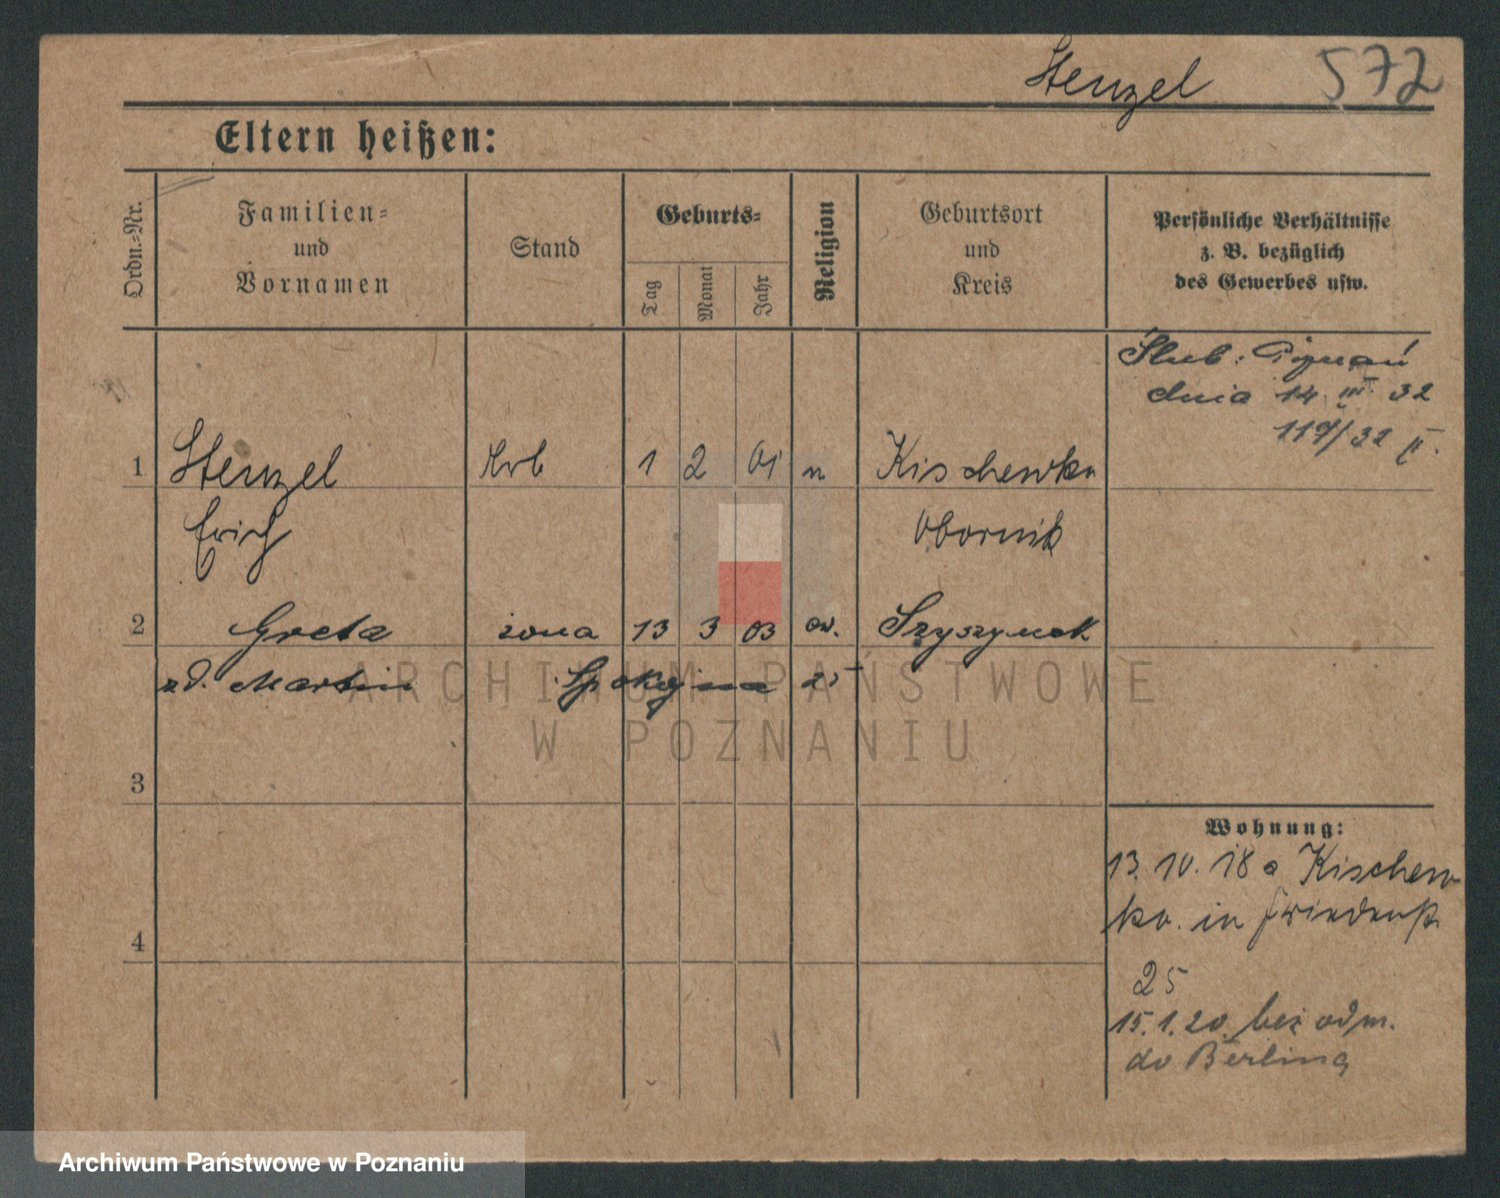 Stenzel 572
Eltern heißen:
Ordn.=Nr.
Familien=
und
Vornamen
Stand
Geburts=
Tag
Monat
Jahr
Religion
Geburtsort
und
Kreis
Persönliche Verhältnisse
z. B. bezüglich
des Gewerbes usw.
Ślub: Poznań
dnia 14 III. 32
1 Stenzel 1 2 01 Kischewko
Erich Obornik
2 Greta żona 13 3 03 ew.
zd. Martin Spokojna 25
3
4
Wohnung:
13. 10. 18 a Kischew
ko. in Friedenst
25
15.1.20 bez odm.
do Berlina
ARCHIWUM PAŃSTWOWE
W POZNANIU
Archiwum Państwowe w Poznaniu